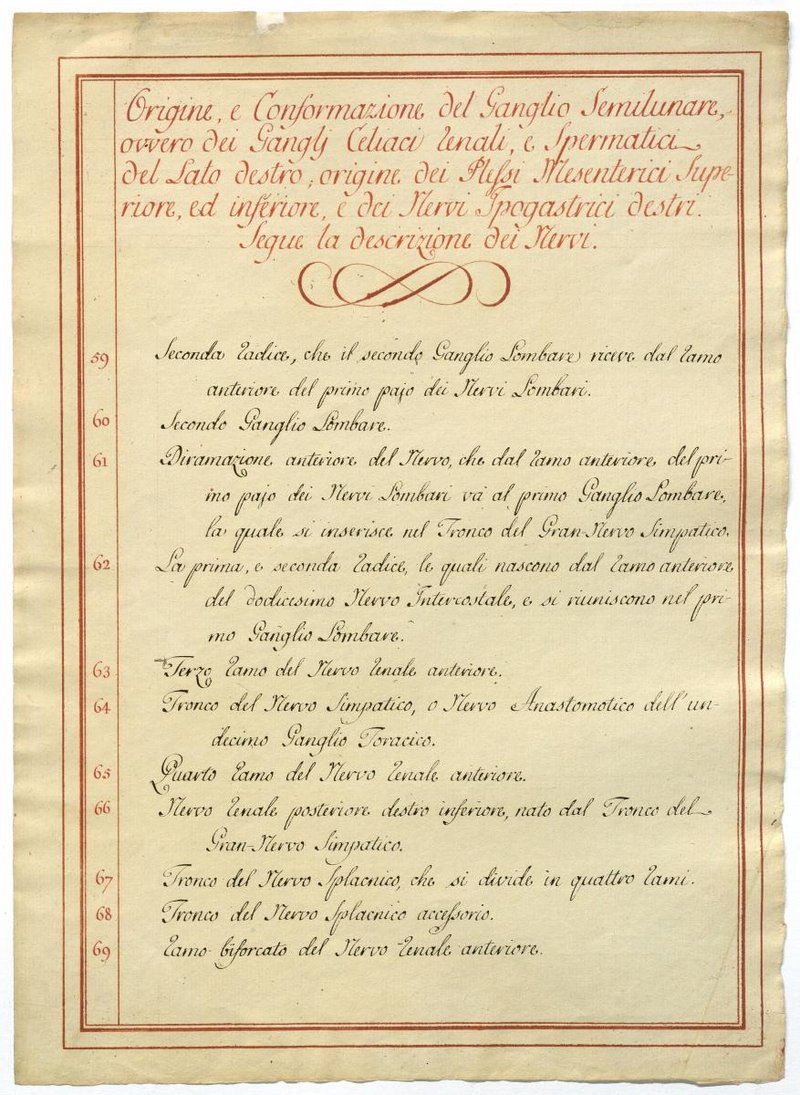 Origine, e Conformazione del Ganglio Semilunare,
ovvero dei Ganglj Celiaci Renali, e Spermatici
del Lato destro; origine dei Plessi Mesenterici Supe-
riore, ed inferiore, e dei Nervi Ipogastrici destri.
Segue la descrizione dei Nervi.
59 Seconda Radice, che il secondo Ganglio Lombare riceve dal Ramo
anteriore del primo pajo dei Nervi Lombari.
60 Secondo Ganglio Lombare.
61 Diramazione anteriore del Nervo, che dal Ramo anteriore del pri-
mo pajo dei Nervi Lombari va al primo Ganglio Lombare,
la quale si inserisce nel Tronco del Gran-Nervo Simpatico.
62 La prima, e seconda Radice, le quali nascono dal Ramo anteriore
del dodicesimo Nervo Intercostale, e si riuniscono nel pri-
mo Ganglio Lombare.
63 Terzo Ramo del Nervo Renale anteriore.
64 Tronco del Nervo Simpatico, o Nervo Anastomotico dell'un-
decimo Ganglio Toracico.
65 Quarto Ramo del Nervo Renale anteriore.
66 Nervo Renale posteriore destro inferiore, nato dal Tronco del
Gran-Nervo Simpatico.
67 Tronco del Nervo Splacnico, che si divide in quattro Rami.
68 Tronco del Nervo Splacnico accessorio.
69 Ramo biforcato del Nervo Renale anteriore.